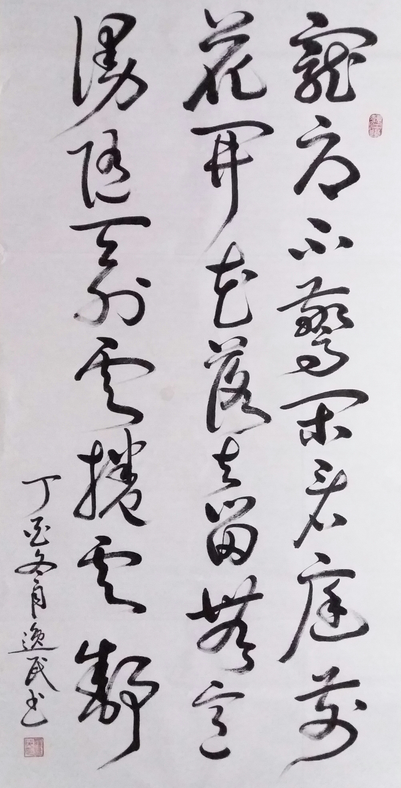 寵辱不驚閑看庭前
花開花落去留無意
漫隨天外云捲云舒
丁酉冬月逸民书